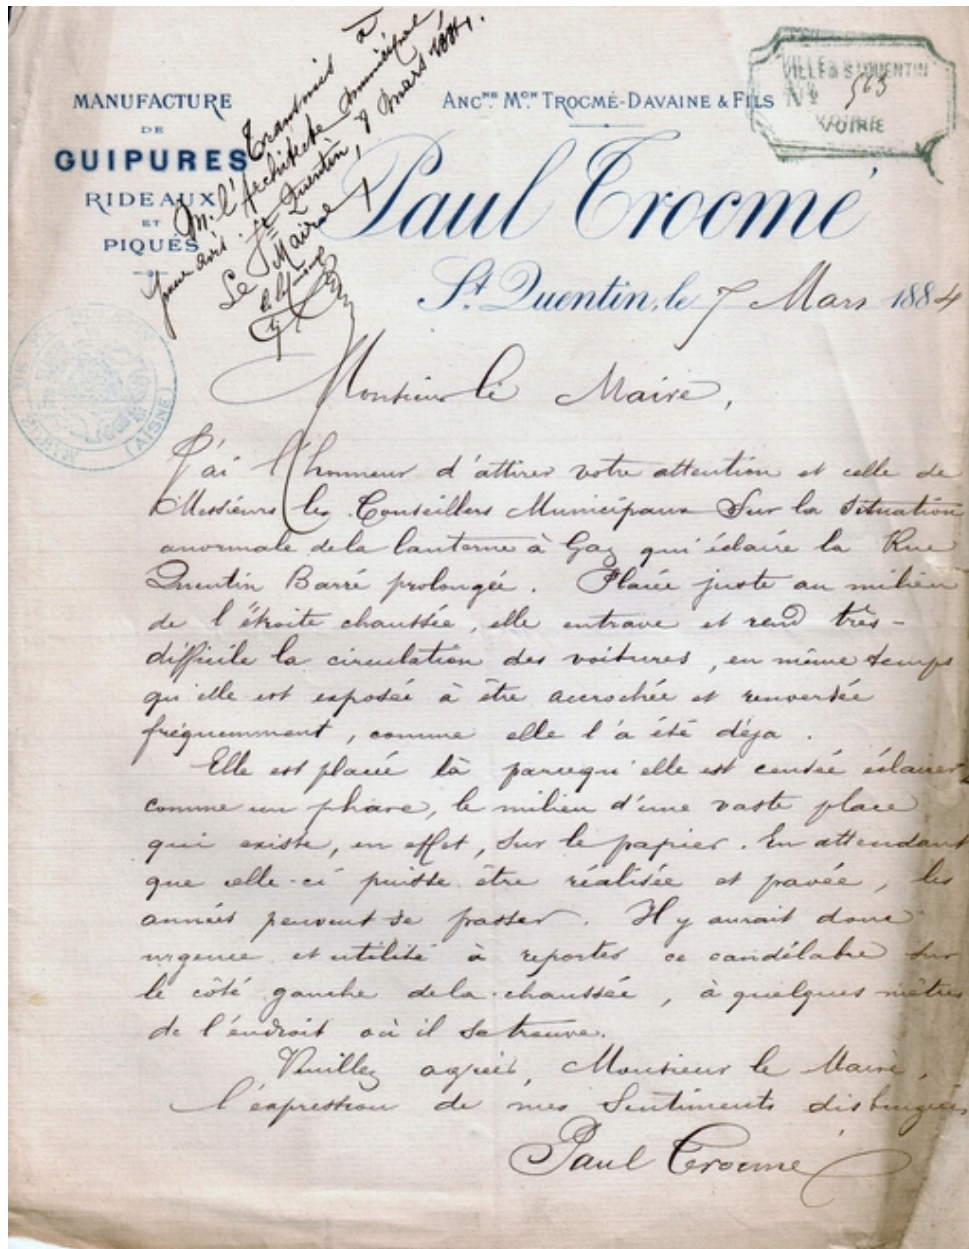 MANUFACTURE
DE
GUIPURES
RIDEAUX
ET
PIQUÉS
Transmis à
M. l'Architecte municipal
pour avis. St Quentin, 8 Mars 1884.
Le Maire
Ancne Mon TROCMÉ-DAVAINE & FILS
VILLE DE St QUENTIN
No 563
VOIRIE
Paul Trocmé
St Quentin, le 7 Mars 1884
MAIRIE
(AISNE)
Monsieur le Maire,
J'ai l'honneur d'attirer votre attention et celle de
Messieurs les Conseillers Municipaux Sur la Situation
anormale de la lanterne à Gaz qui éclaire la Rue
Quentin Barré prolongée. Placée juste au milieu
de l'étroite chaussée, elle entrave et rend très-
difficile la circulation des voitures, en même temps
qu'elle est exposée à être accrochée et renversée
fréquemment, comme elle l'a été déja.
Elle est placée là parcequ'elle est censée éclairer,
comme un phare, le milieu d'une vaste place
qui existe, en effet, sur le papier. En attendant
que celle-ci puisse être réalisée et pavée, les
années peuvent se passer. Il y aurait donc
urgence et utilité à reporter ce candélabre sur
le côté gauche de la chaussée, à quelques mètres
de l'endroit où il se trouve.
Veuillez agréer, Monsieur le Maire,
l'expression de mes Sentiments distingués
Paul Trocmé